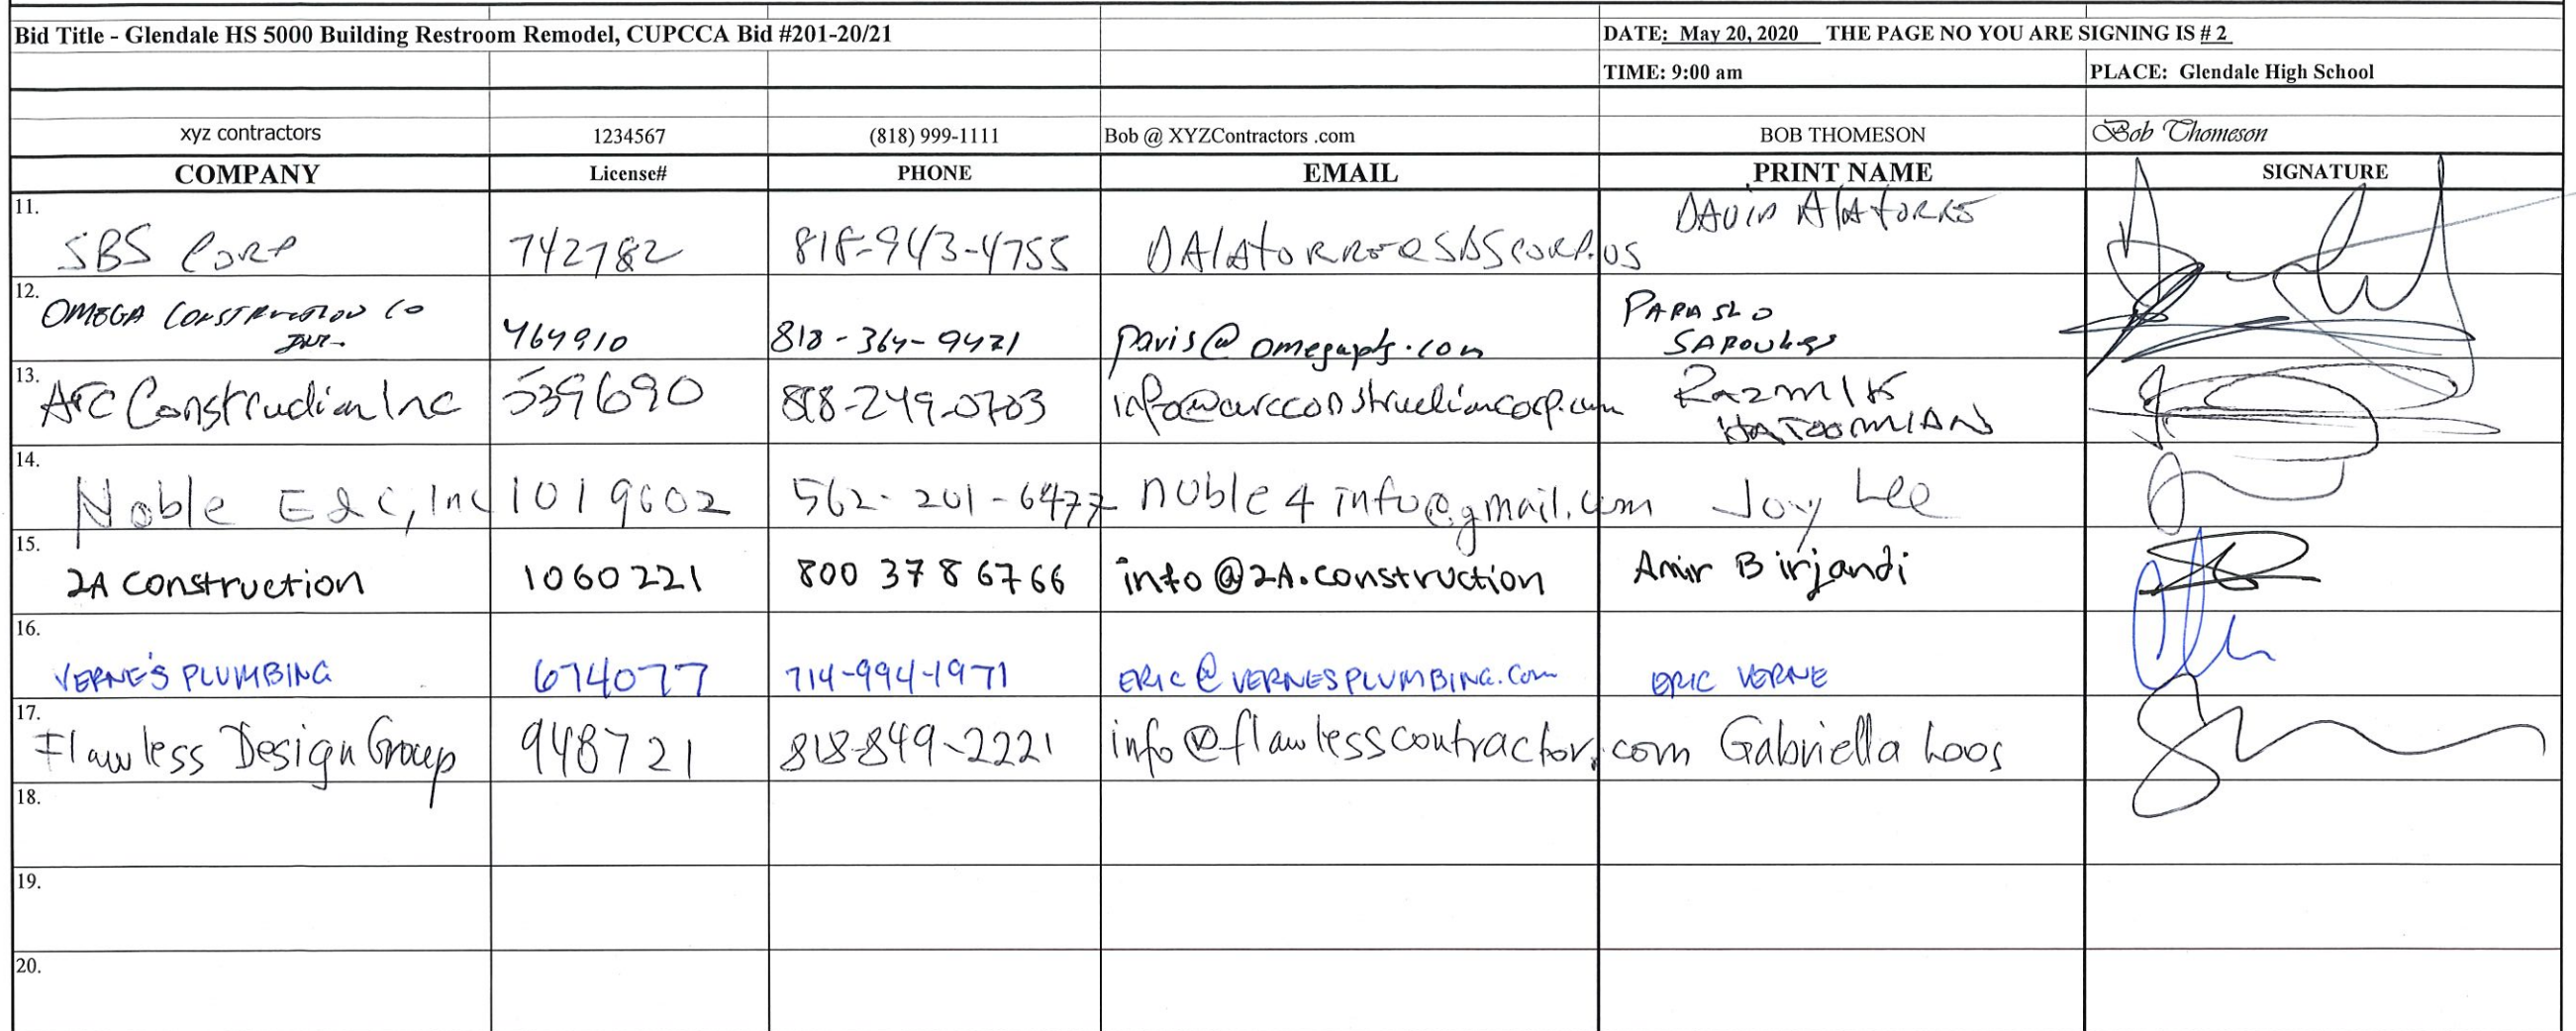 Bid Title - Glendale HS 5000 Building Restroom Remodel, CUPCCA Bid #201-20/21 DATE: May 20, 2020 THE PAGE NO YOU ARE SIGNING IS # 2
TIME: 9:00 am PLACE: Glendale High School
xyz contractors 1234567 (818) 999-1111 Bob @ XYZContractors .com BOB THOMESON Bob Thomeson
COMPANY License# PHONE EMAIL PRINT NAME SIGNATURE
11. SBS CORP 742782 818-943-4755 DAlAtoRRE@SBSCORP.US DAVID AlAtoRRE
12. OMEGA CONSTRUCTION CO 818-364-9471 paris@
INC. 764910
13. ARC Construction Inc 539690 818-249-0703 info@arcconstructioncorp.com RAZMIK
HATOOMIAN
14. Noble E&C, Inc 1019602 562-201-6477 noble4info@gmail.com Joy Lee
15. 2A construction 1060221 800 378 6766 info@2A.construction Amir Birjandi
16. VERNE'S PLUMBING 674077 714-994-1971 ERIC@VERNESPLUMBING.Com ERIC VERNE
17. Flawless Design Group 948721 818-849-2221 info@flawlesscontractor.com Gabriella Loos
18.
19.
20.